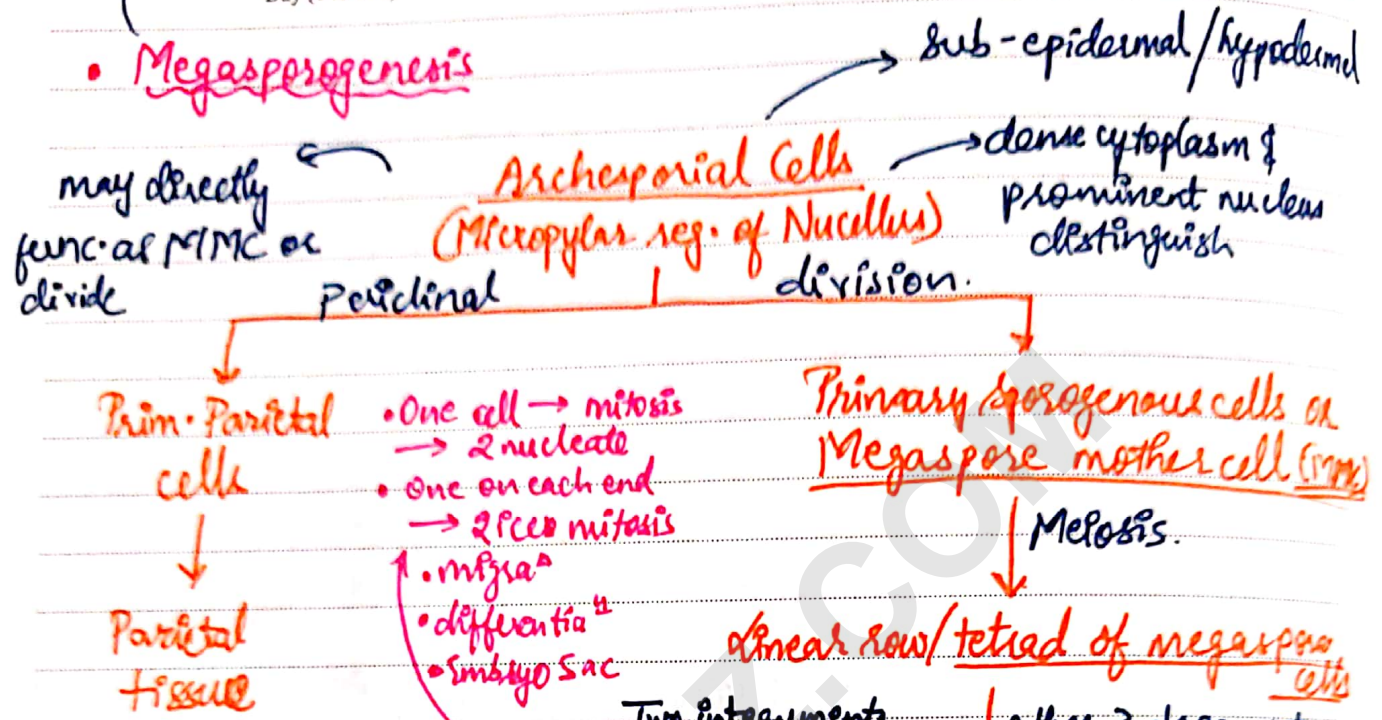 • Megasporogenesis
Sub-epidermal/hypodermal
Archesporial Cells
(Micropylar reg. of Nucellus)
dense cytoplasm &
prominent nucleus
distinguish
may directly
func. as MMC or
divide
Periclinal division.
Prim. Parietal
cells
Parietal
tissue
• One cell → mitosis
→ 2 nucleate
• One on each end
→ 2 mitosis
• migraⁿ
• differentiaⁿ
• Embryo Sac
Primary Sporogenous cells or
Megaspore mother cell (MMC)
Meiosis.
Linear row/tetrad of megaspore
cells
Two integuments
Z.COM